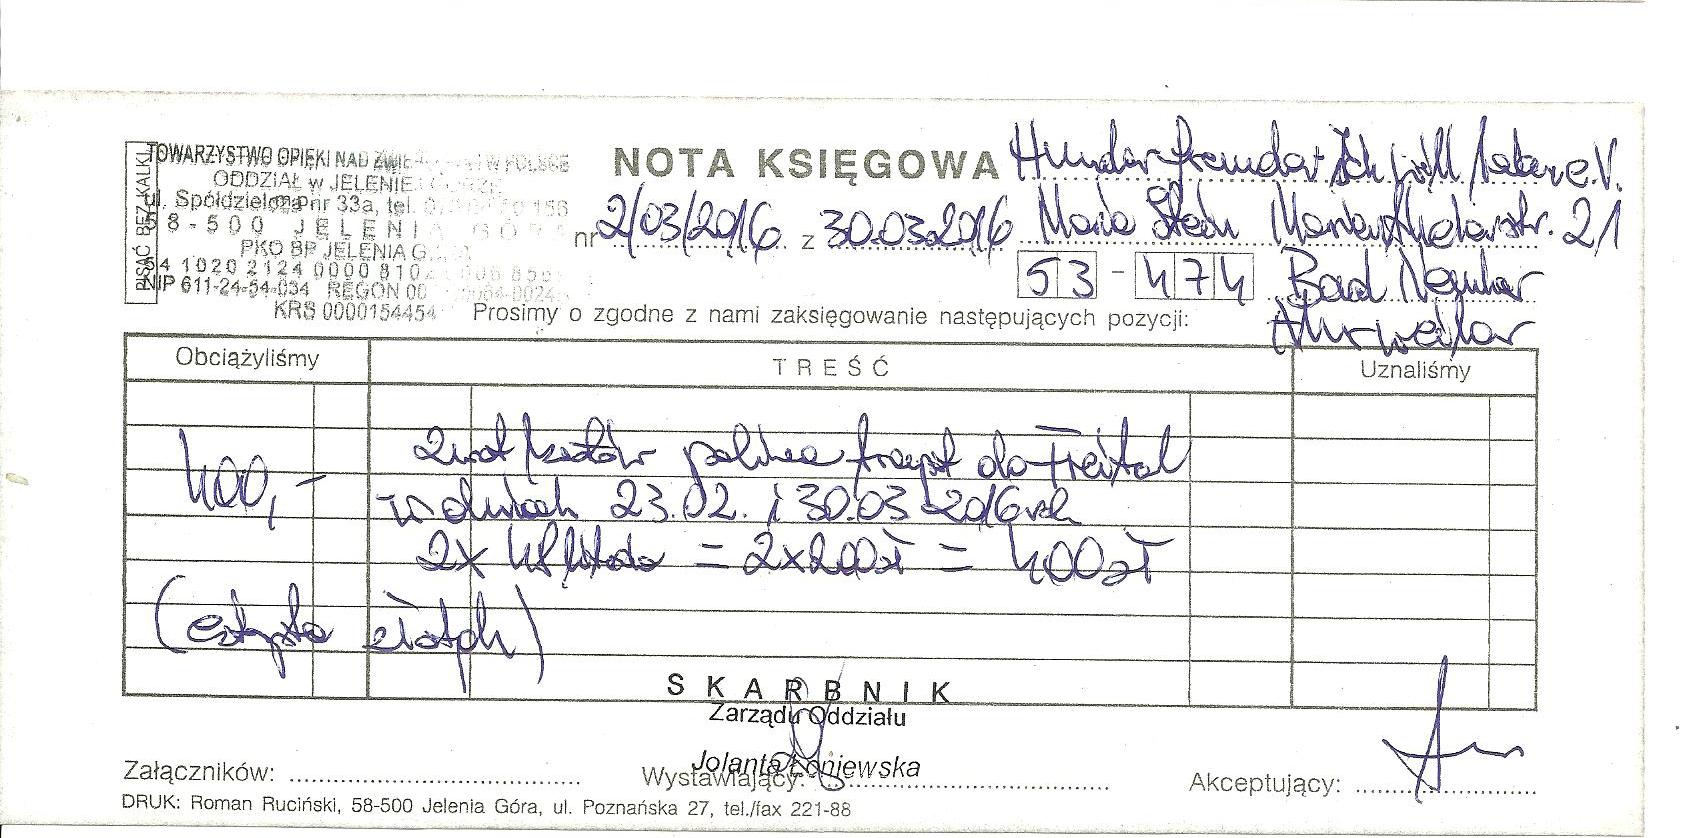 PISAĆ BEZ KALKI
TOWARZYSTWO OPIEKI NAD W POLSCE
ODDZIAŁ w JELENIEJ GÓRZE
ul. Spółdzielcza nr 33a, tel. 156
58-500 JELENIA GÓRA
PKO BP JELENIA
54 1020 2124 0000 8102
NIP 611-24-54-034 REGON
KRS 0000154454
NOTA KSIĘGOWA
nr 2/03/2016 z 30.03.2016
e.V.
Maria 21
53-474 Bad
Prosimy o zgodne z nami zaksięgowanie następujących pozycji:
Obciążyliśmy TREŚĆ Uznaliśmy
400,- zwrot kosztów paliwa transp do Freital
w dniach 23.02. i 30.03 2016
2x = 2x200zł = 400zł
(czterysta złotych)
SKARBNIK
Zarządu Oddziału
Jolanta Łoniewska
Załączników: Wystawiający: Akceptujący:
DRUK: Roman Ruciński, 58-500 Jelenia Góra, ul. Poznańska 27, tel./fax 221-88